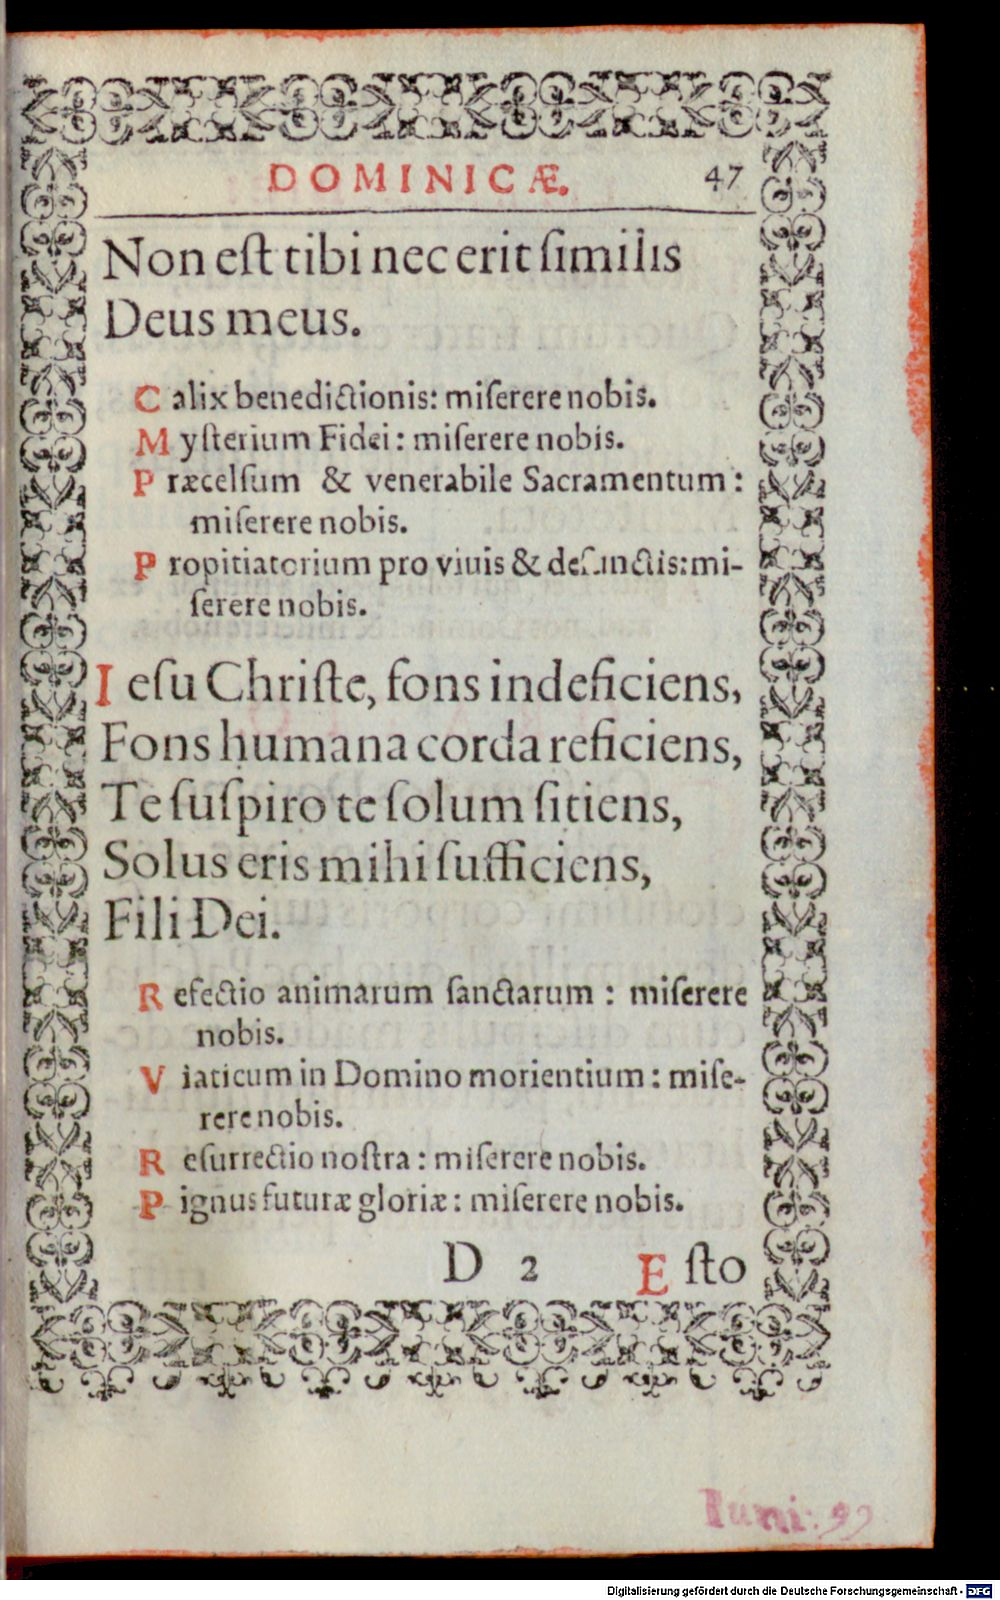 DOMINICÆ. 47
Non eſt tibi nec erit ſimilis
Deus meus.
Calix benedictionis: miſerere nobis.
Myſterium Fidei: miſerere nobis.
Præcelſum & venerabile Sacramentum:
miſerere nobis.
Propitiatorium pro viuis & defunctis: mi-
ſerere nobis.
Ieſu Chriſte, fons indeficiens,
Fons humana corda reficiens,
Te ſuſpiro te ſolum ſitiens,
Solus eris mihi ſufficiens,
Fili Dei.
Refectio animarum ſanctarum: miſerere
nobis.
Viaticum in Domino morientium: miſe-
rere nobis.
Reſurrectio noſtra: miſerere nobis.
Pignus futuræ gloriæ: miſerere nobis.
D 2 Eſto
Digitalisierung gefördert durch die Deutsche Forschungsgemeinschaft - DFG